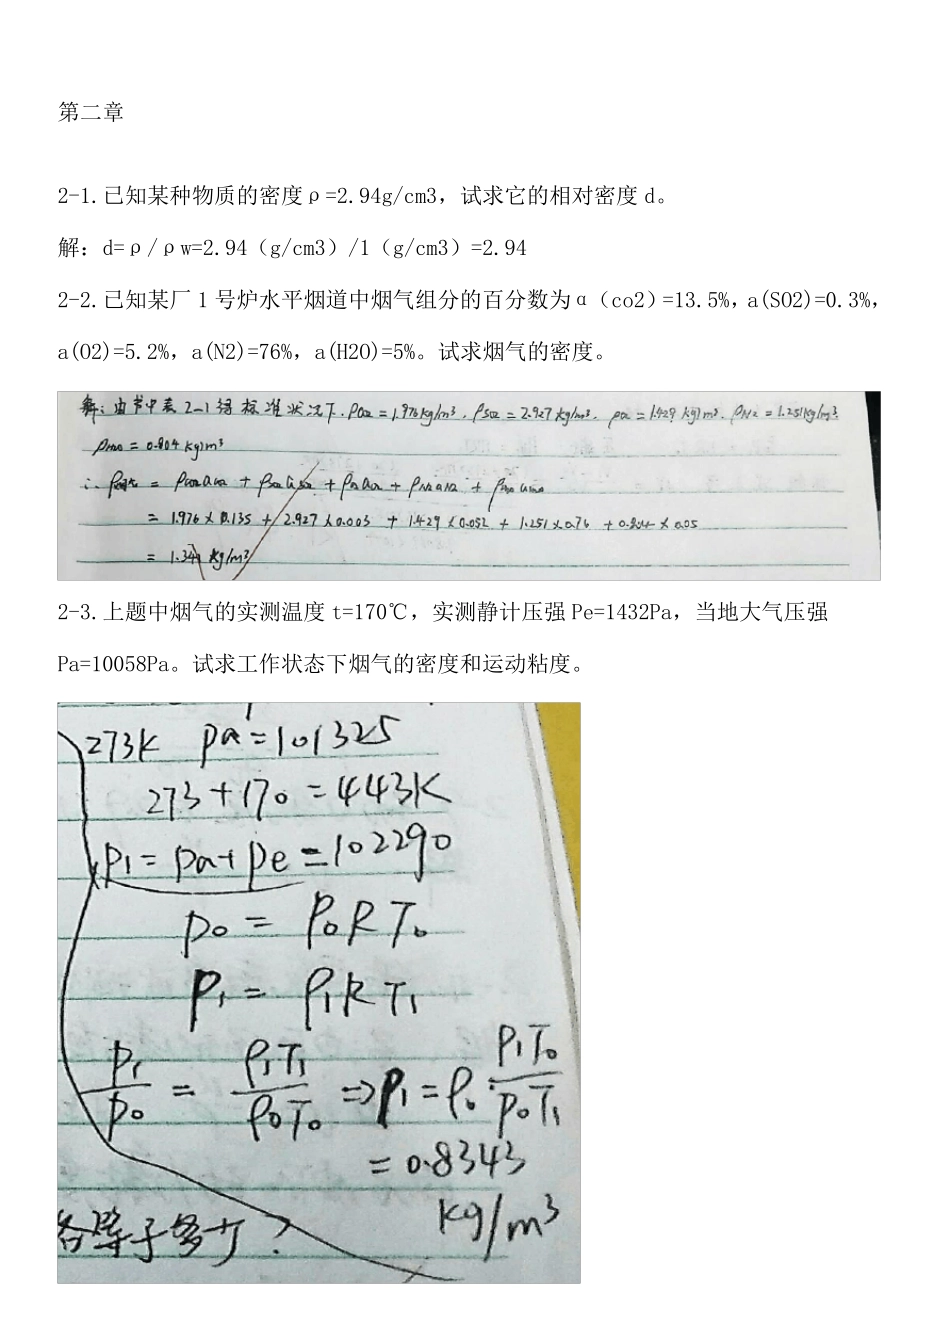 第二章
2-1.已知某种物质的密度ρ=2.94g/cm3，试求它的相对密度 d。
解：d=ρ/ρw=2.94（g/cm3）/1（g/cm3）=2.94
2-2.已知某厂 1 号炉水平烟道中烟气组分的百分数为α（co2）=13.5%，a(SO2)=0.3%，
a(O2)=5.2%，a(N2)=76%，a(H2O)=5%。试求烟气的密度。
解：由书中表2-1得标准状况下. ρco2=1.976kg/m3. ρso2=2.927kg/m3. ρo2=1.429kg/m3. ρN2=1.251kg/m3.
ρH2O=0.804kg/m3
= 1.976×0.135+2.927×0.003+1.429×0.052+1.251×0.76+0.804×0.05
= 1.341 kg/m3
2-3.上题中烟气的实测温度 t=170℃，实测静计压强 Pe=1432Pa，当地大气压强
Pa=10058Pa。试求工作状态下烟气的密度和运动粘度。
273K pa=101325
273+170=443K
p1=pa+pe=102290
p0=ρ0RT0
p1=ρ1RT1
p1/p0=ρ1T1/ρ0T0⇒ρ1=ρ0·p1T0/p0T1
=0.8343
kg/m3
各等于多少？